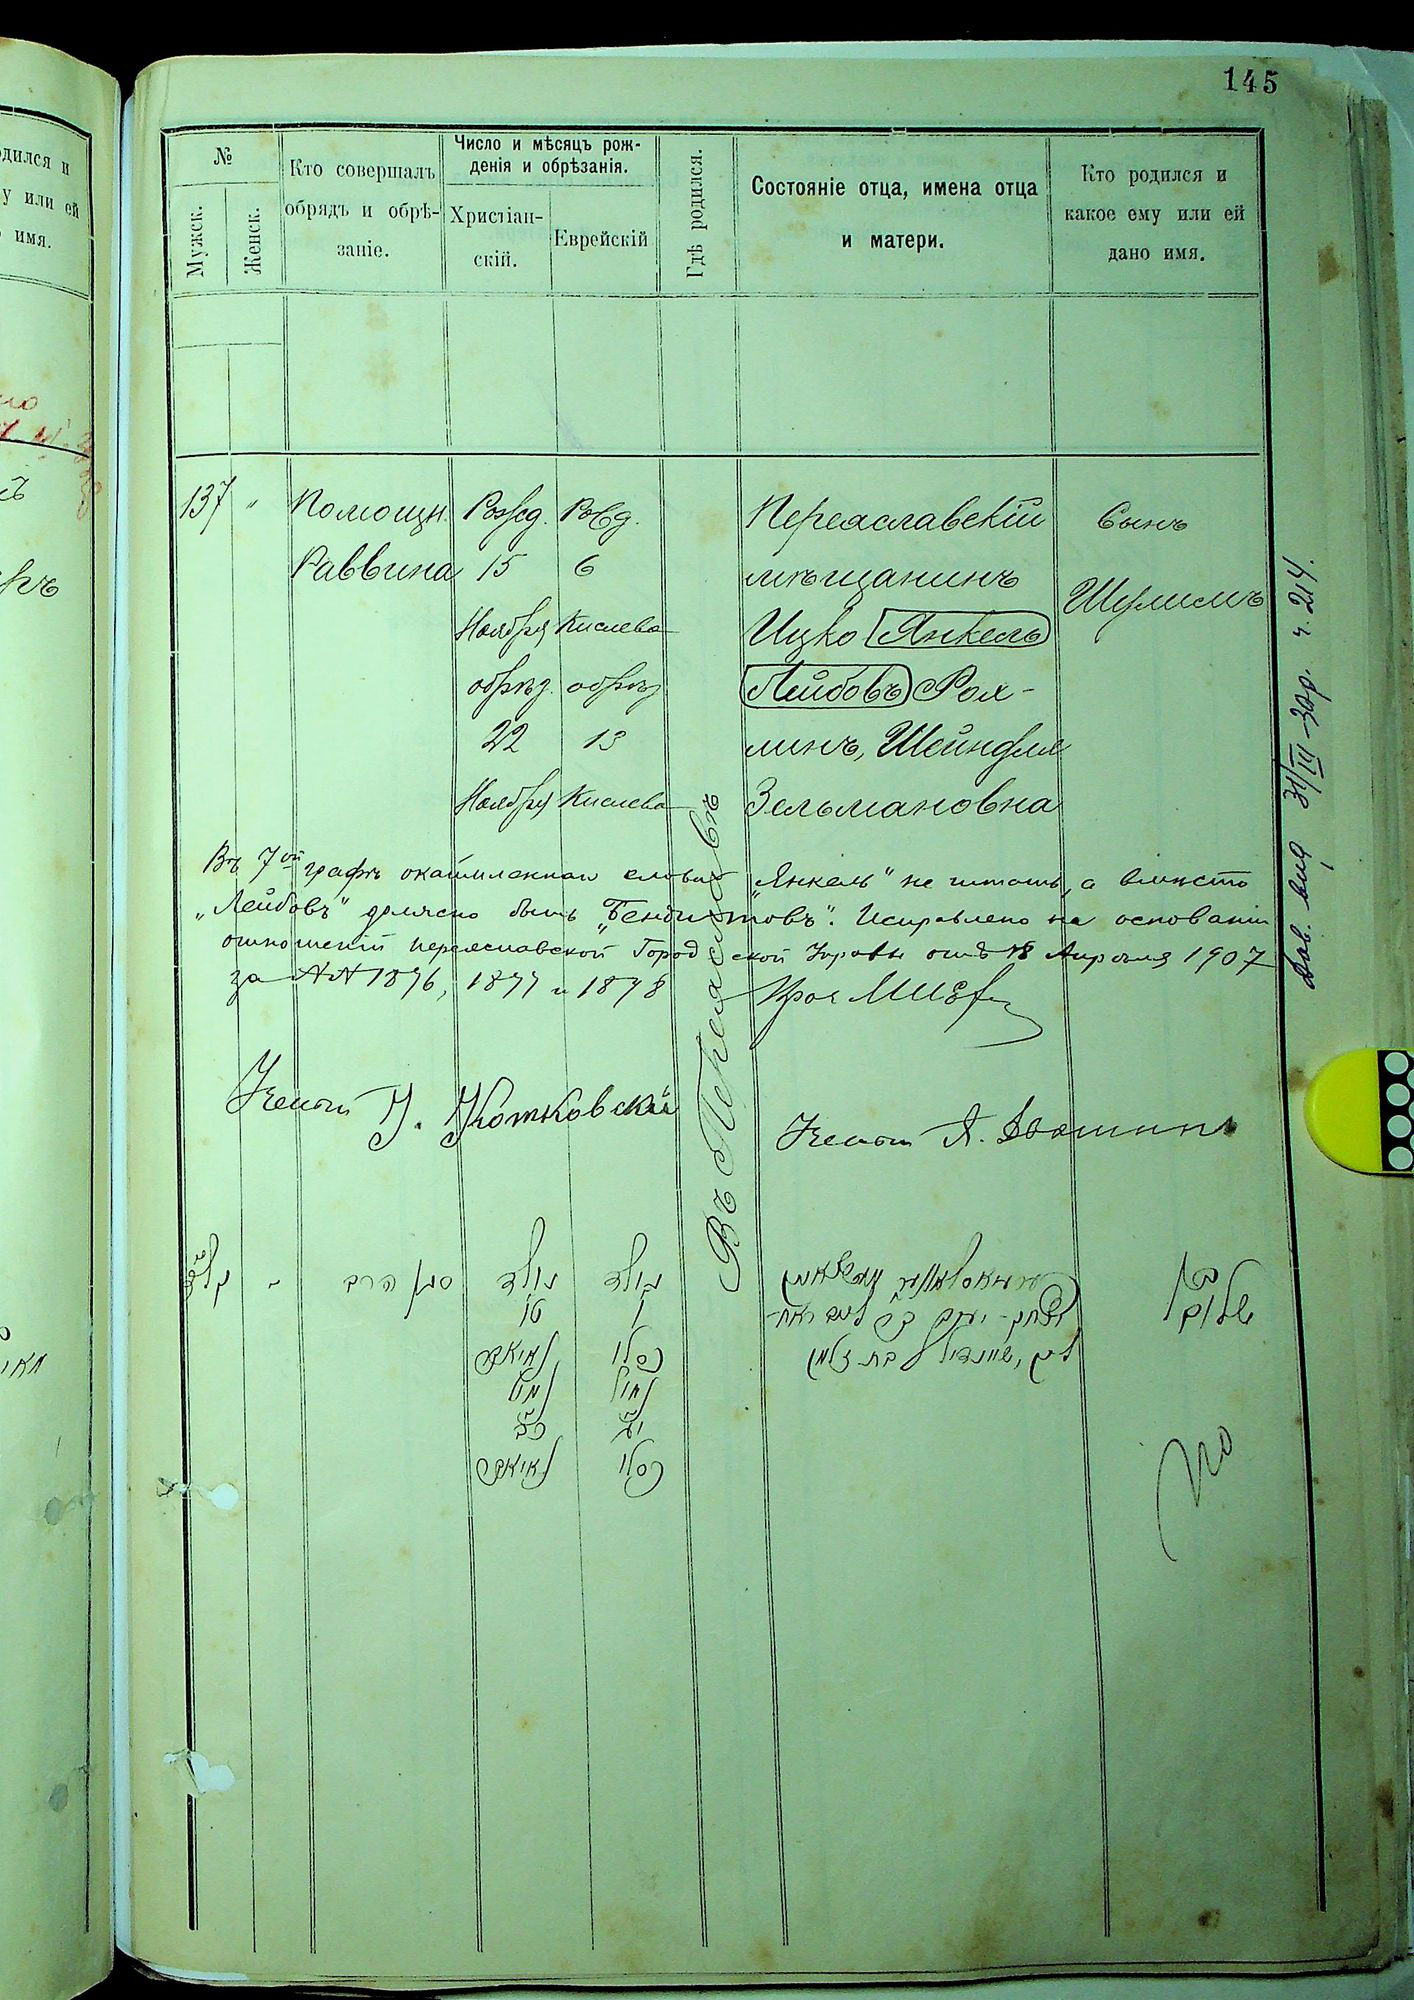 145
№
Мужск.
Женск.
Кто совершалъ
обрядъ и обрѣ-
заніе.
Число и мѣсяцъ рож-
денія и обрѣзанія.
Христіан-
скій.
Еврейскій
Гдѣ родился.
Состояніе отца, имена отца
и матери.
Кто родился и
какое ему или ей
дано имя.
137 "
Помощн.
Раввина
Рожд.
15
Ноября
обрѣз.
22
Ноября
Рожд.
6
Кислева
обрѣз
13
Кислева
Въ Переяславѣ
Переяславскій
мѣщанинъ
Ицко Янкель
Лейбовъ Роя-
линъ, Шейндля
Зельмановна
Сынъ
Шулимъ
Въ 7ой графѣ окаймленное слово „Янкель" не читать, а вмѣсто
„Лейбовъ" должно быть „Бендитовъ". Исправлено на основаніи
отношеній Переяславской Городской Управы отъ 18 Апрѣля 1907
за №№ 1876, 1877 и 1878
סגן הרב
נולד
טו
נולד
ו
כסלו
למול
יג
כסלו
כב
בת זלמן
בן
שלום
31/III 30р. ч. 214.
одился и
у или ей
имя.